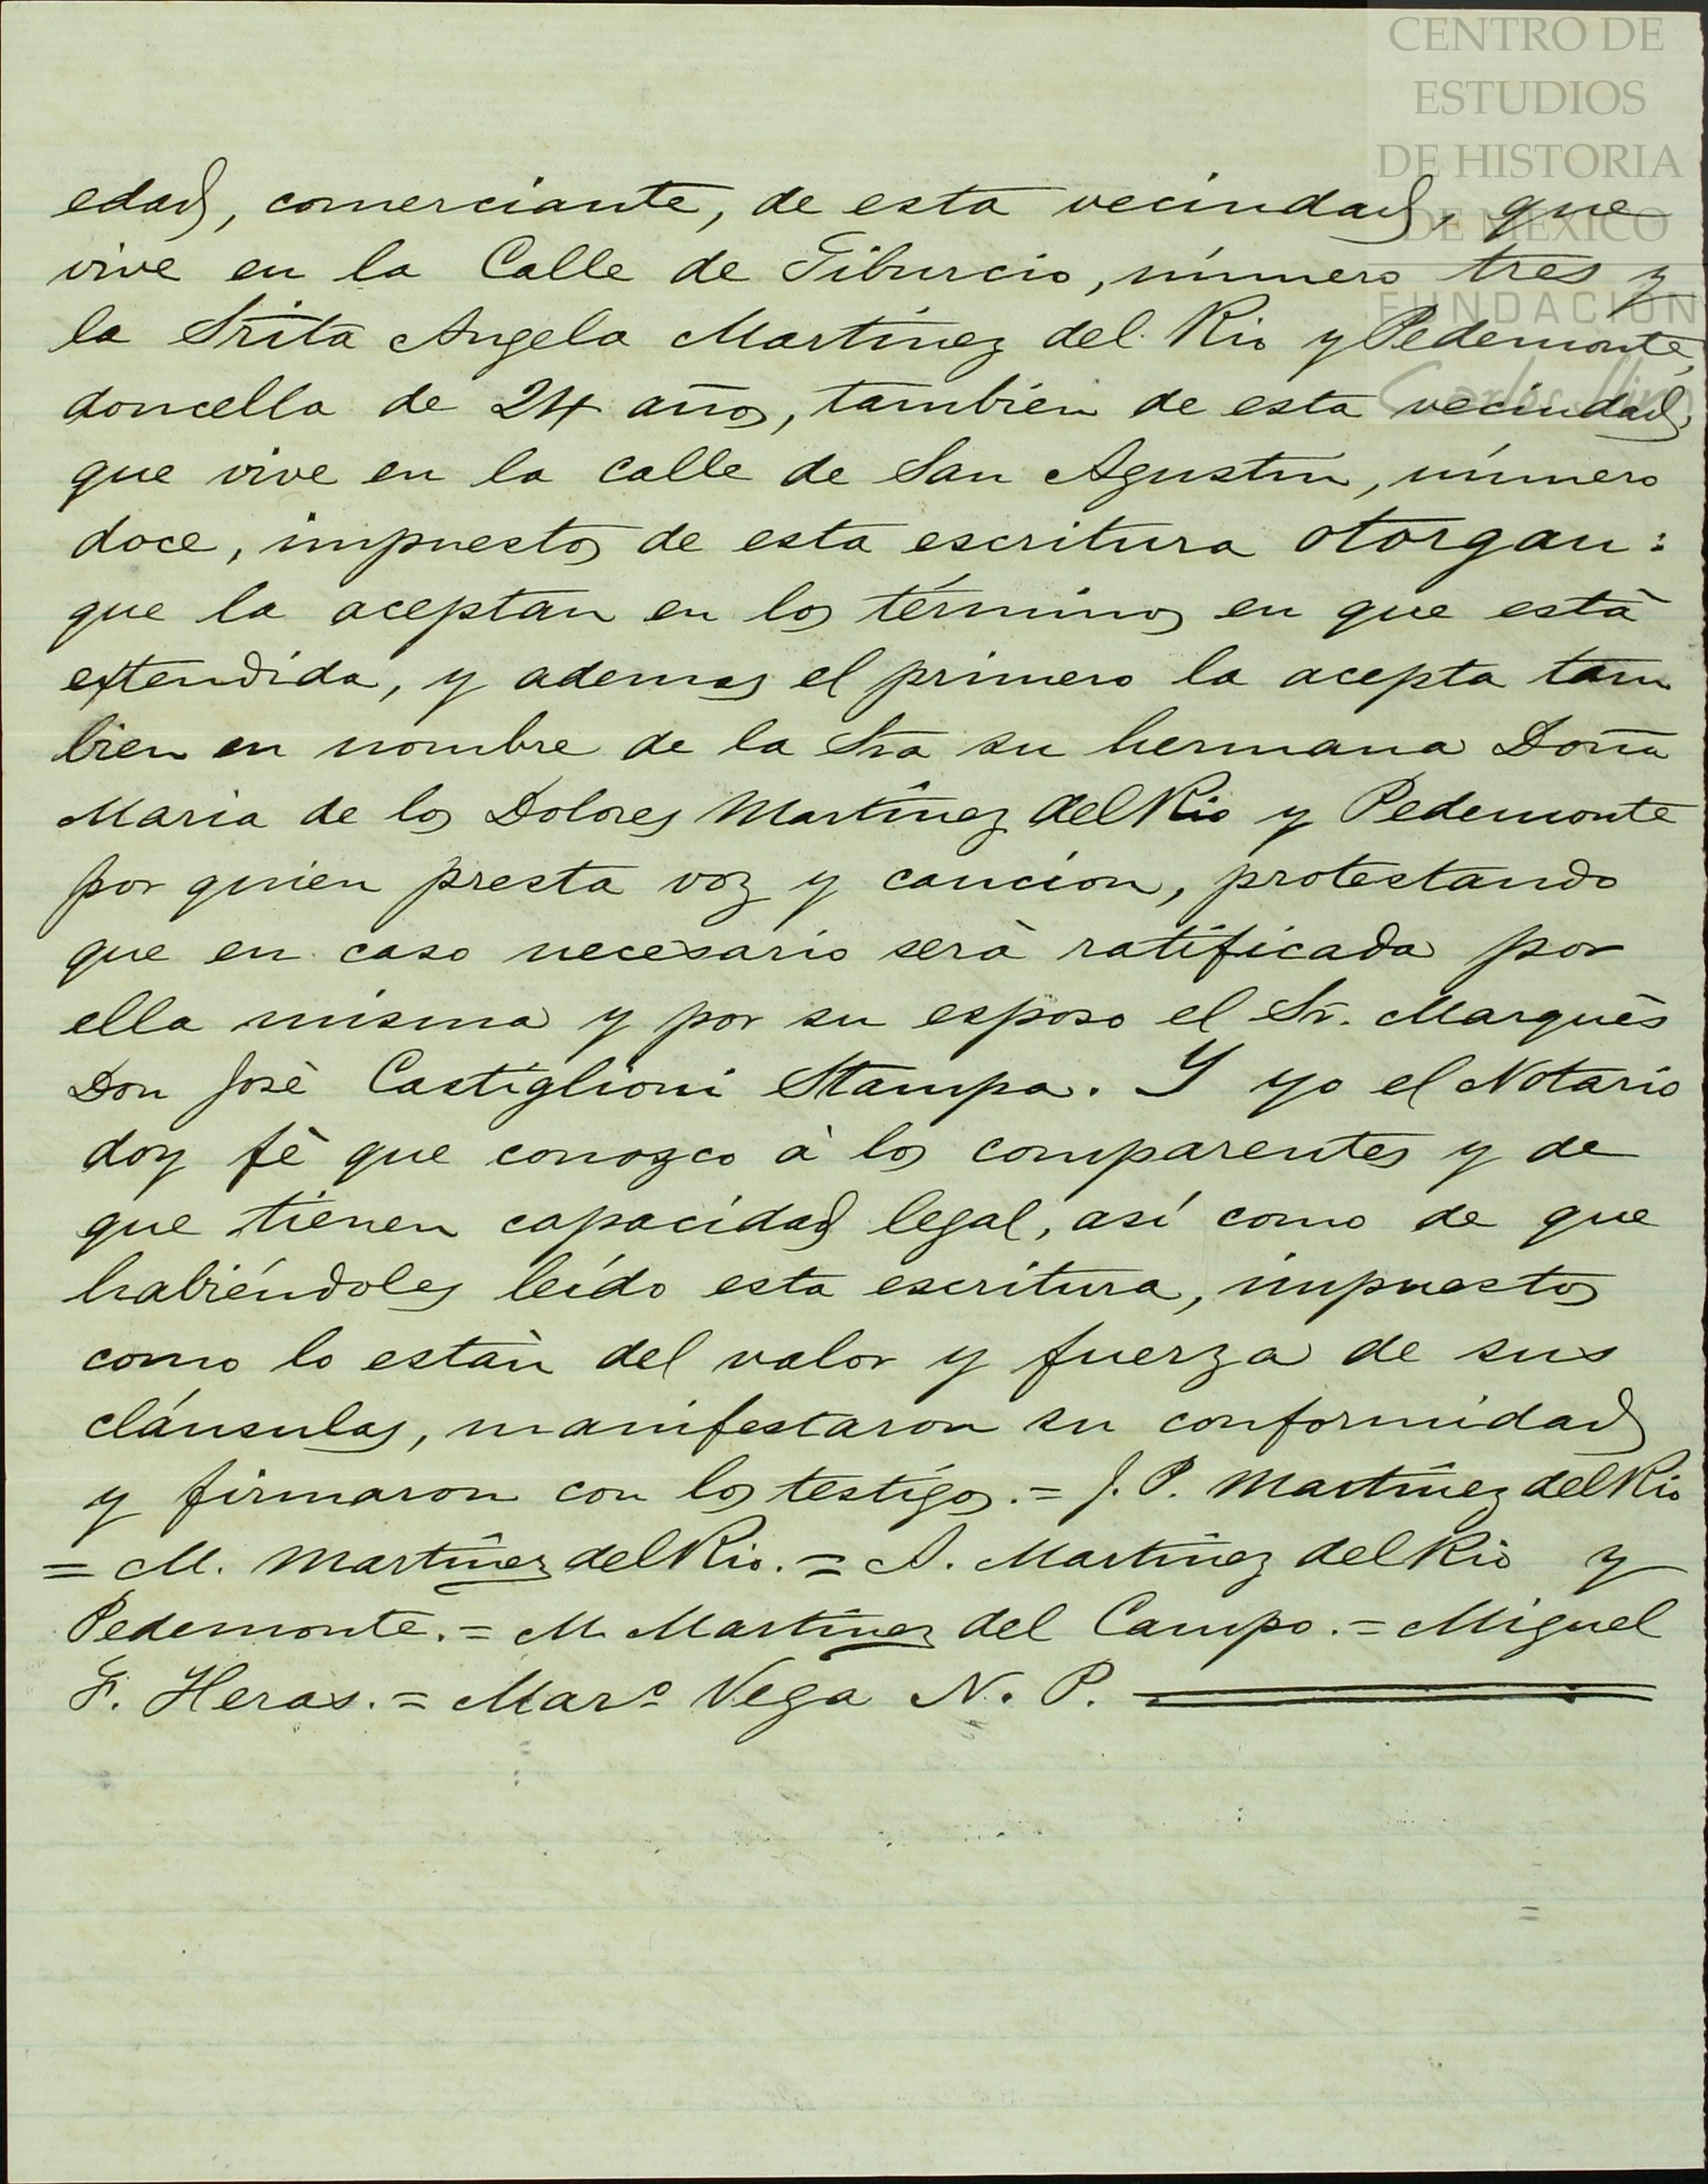 CENTRO DE
ESTUDIOS
DE HISTORIA
DE MÉXICO
FUNDACIÓN
Carlos Slim
edad, comerciante, de esta vecindad, que
vive en la Calle de Tiburcio, número tres y
la Srita Angela Martínez del Rio y Pedemonte,
doncella de 24 años, también de esta vecindad,
que vive en la calle de San Agustin, número
doce, impuestos de esta escritura otorgan:
que la aceptan en los términos en que está
extendida, y ademas el primero la acepta tam
bien en nombre de la Sra su hermana Doña
Maria de los Dolores Martínez del Rio y Pedemonte
por quien presta voz y caución, protestando
que en caso necesario serà ratificada por
ella misma y por su esposo el Sr. Marquès
Don Josè Castiglioni Stampa. Y yo el Notario
doy fè que conozco à los comparentes y de
que tienen capacidad legal, así como de que
habiéndoles leído esta escritura, impuestos
como lo estàn del valor y fuerza de sus
cláusulas, manifestaron su conformidad
y firmaron con los testigos.= J. P. Martínez del Rio
= M. Martínez del Rio. = A. Martínez del Rio y
Pedemonte. = M. Martínez del Campo. = Miguel
F. Heras. = Marº Vega N. P.